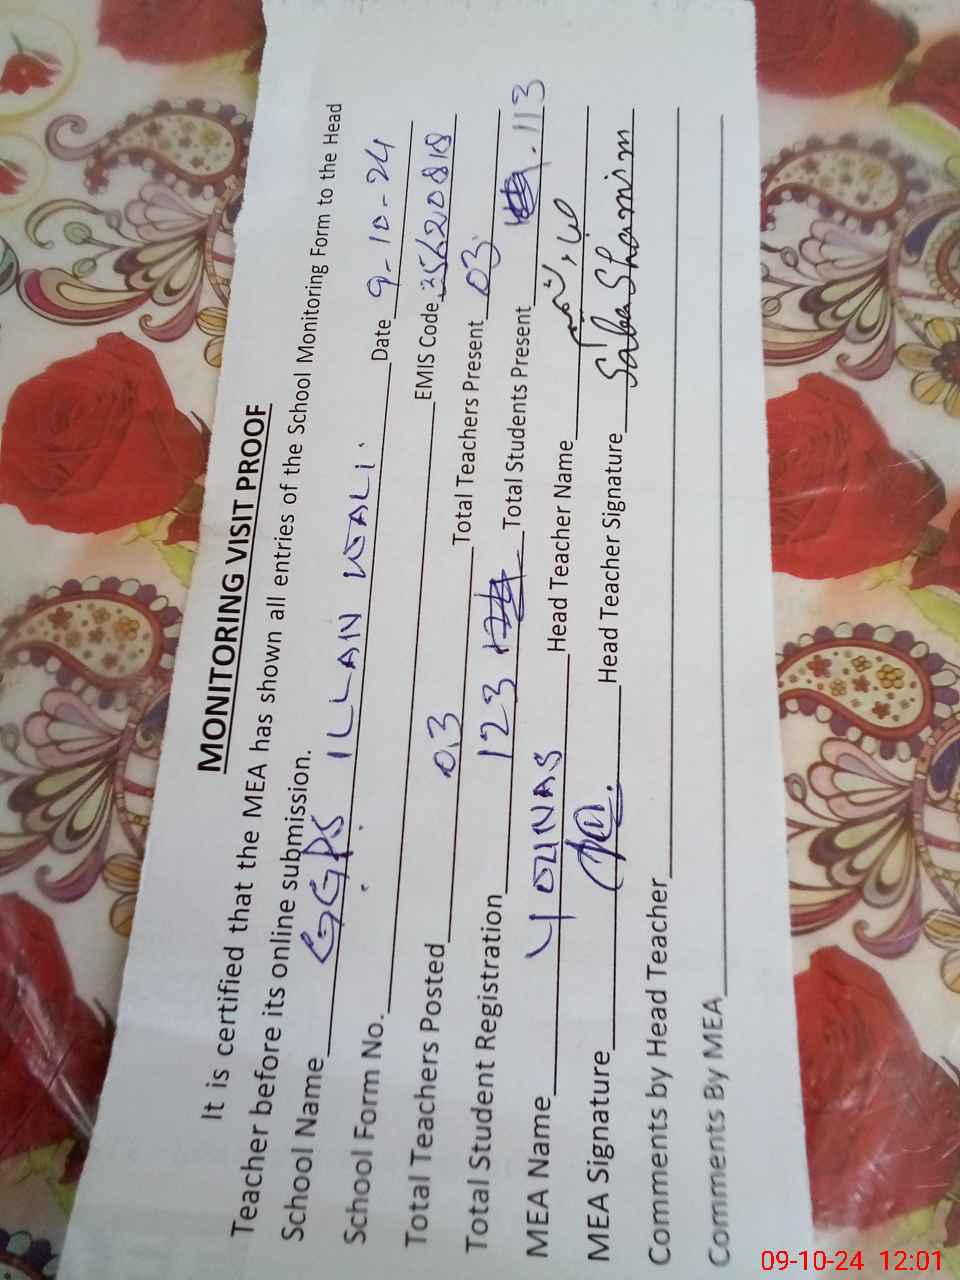 MONITORING VISIT PROOF
It is certified that the MEA has shown all entries of the School Monitoring Form to the Head
Teacher before its online submission.
School Name GGPS ILLAN WALI. Date 9-10-24
School Form No. EMIS Code 35620818
Total Teachers Posted 03 Total Teachers Present 03
Total Student Registration 123 Total Students Present 113
MEA Name YOUNAS Head Teacher Name
MEA Signature Head Teacher Signature Saba Shamim
Comments by Head Teacher
Comments By MEA
09-10-24 12:01